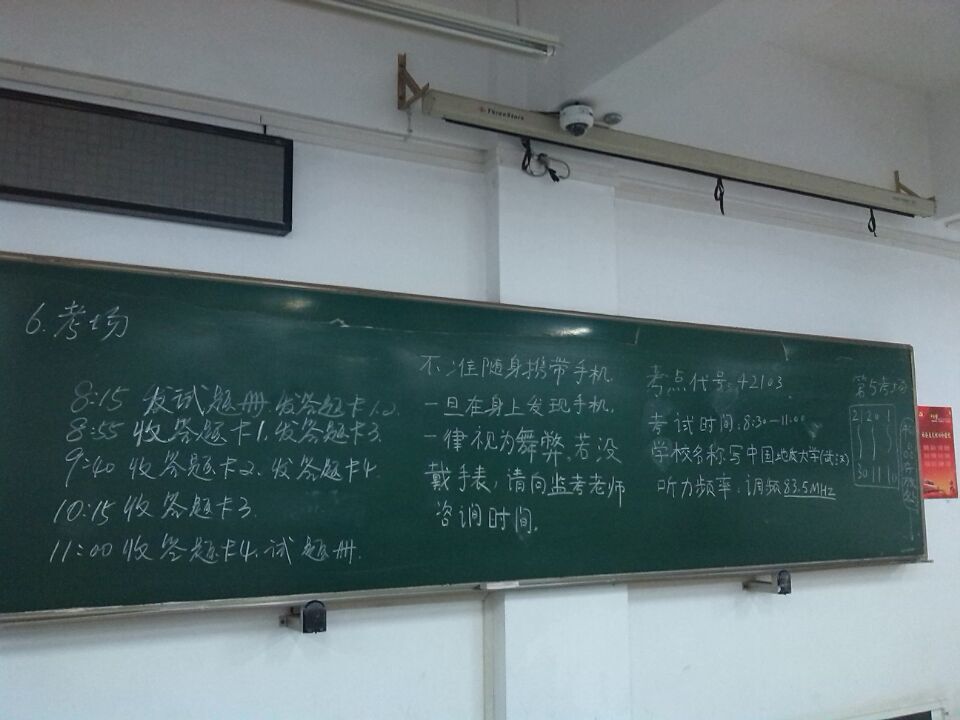 ThreeStars
6.考场
8:15 发试题册.发答题卡1.2.
8:55 收答题卡1.发答题卡3.
9:40 收答题卡2.发答题卡4
10:15 收答题卡3.
11:00 收答题卡4.试题册.
不准随身携带手机.
一旦在身上发现手机.
一律视为舞弊.若没
戴手表,请向监考老师
咨询时间.
考点代号:42103
考试时间:8:30—11:00
学校名称写中国地质大学(武汉)
听力频率:调频83.5MHz
第5考场
21 20 1
30 11 10